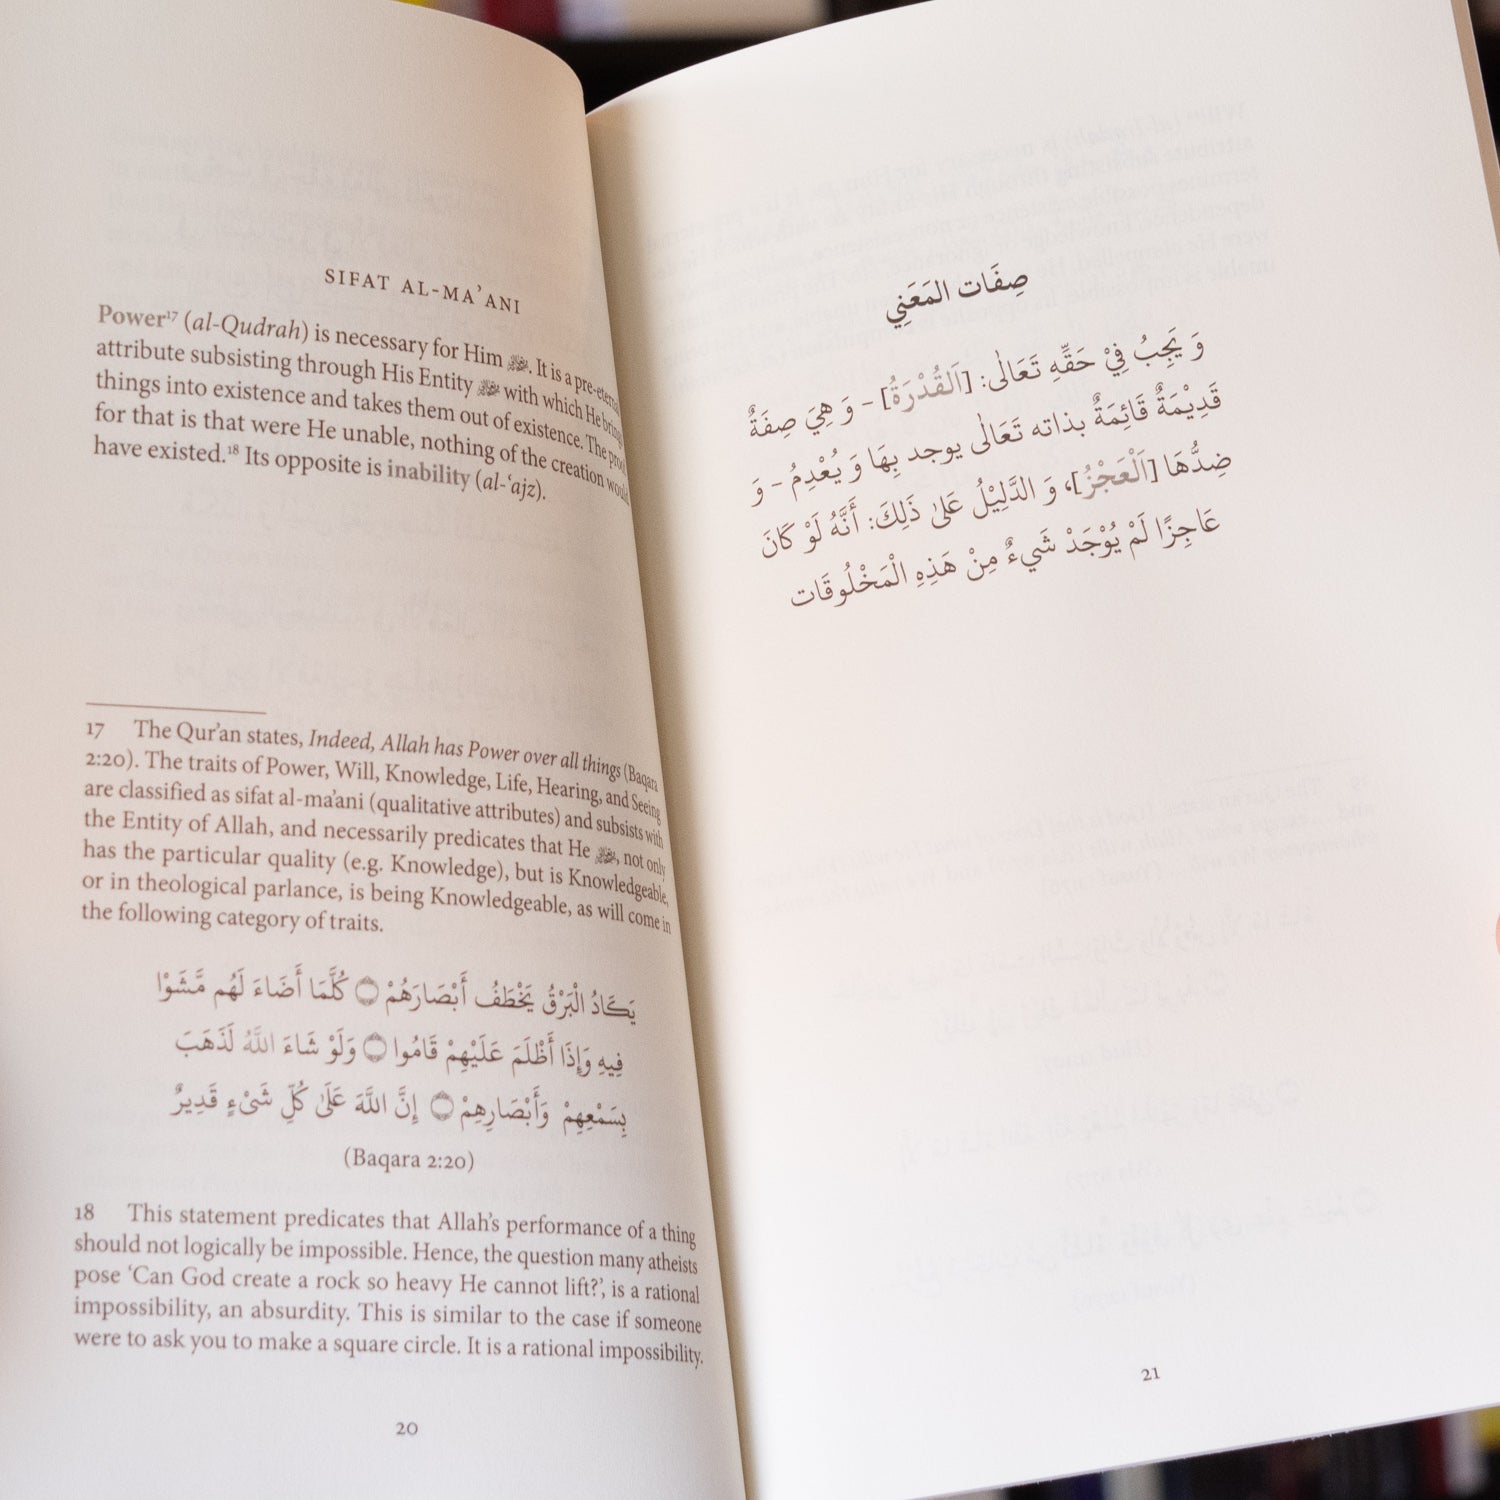 SIFAT AL-MAʾANI
Power¹⁷ (al-Qudrah) is necessary for Him ﷻ. It is a pre-eternal
attribute subsisting through His Entity ﷻ with which He brings
things into existence and takes them out of existence. The proof
for that is that were He unable, nothing of the creation would
have existed.¹⁸ Its opposite is inability (al-ʿajz).
17 The Qur’an states, Indeed, Allah has Power over all things (Baqara
2:20). The traits of Power, Will, Knowledge, Life, Hearing, and Seeing
are classified as sifat al-ma’ani (qualitative attributes) and subsists with
the Entity of Allah, and necessarily predicates that He ﷻ, not only
has the particular quality (e.g. Knowledge), but is Knowledgeable,
or in theological parlance, is being Knowledgeable, as will come in
the following category of traits.
يَكَادُ الْبَرْقُ يَخْطَفُ أَبْصَارَهُمْ ۝ كُلَّمَا أَضَاءَ لَهُم مَّشَوْا
فِيهِ وَإِذَا أَظْلَمَ عَلَيْهِمْ قَامُوا ۝ وَلَوْ شَاءَ اللَّهُ لَذَهَبَ
بِسَمْعِهِمْ وَأَبْصَارِهِمْ ۝ إِنَّ اللَّهَ عَلَىٰ كُلِّ شَىْءٍ قَدِيرٌ
(Baqara 2:20)
18 This statement predicates that Allah’s performance of a thing
should not logically be impossible. Hence, the question many atheists
pose ‘Can God create a rock so heavy He cannot lift?’, is a rational
impossibility, an absurdity. This is similar to the case if someone
were to ask you to make a square circle. It is a rational impossibility.
20
صِفَات المَعَنِي
وَ يَجِبُ فِيْ حَقِّهِ تَعَالٰى: [اَلقُدْرَةُ] – وَ هِيَ صِفَةٌ
قَدِيْمَةٌ قَائِمَةٌ بذاته تَعَالٰى يوجد بِهَا وَ يُعْدِمُ – وَ
ضِدُّهَا [اَلْعَجْزُ]، وَ الدَّلِيْلُ عَلىٰ ذَلِكَ: أَنَّهُ لَوْ كَانَ
عَاجِزًا لَمْ يُوْجَدْ شَيءٌ مِنْ هَذِهِ الْمَخْلُوقَات
21